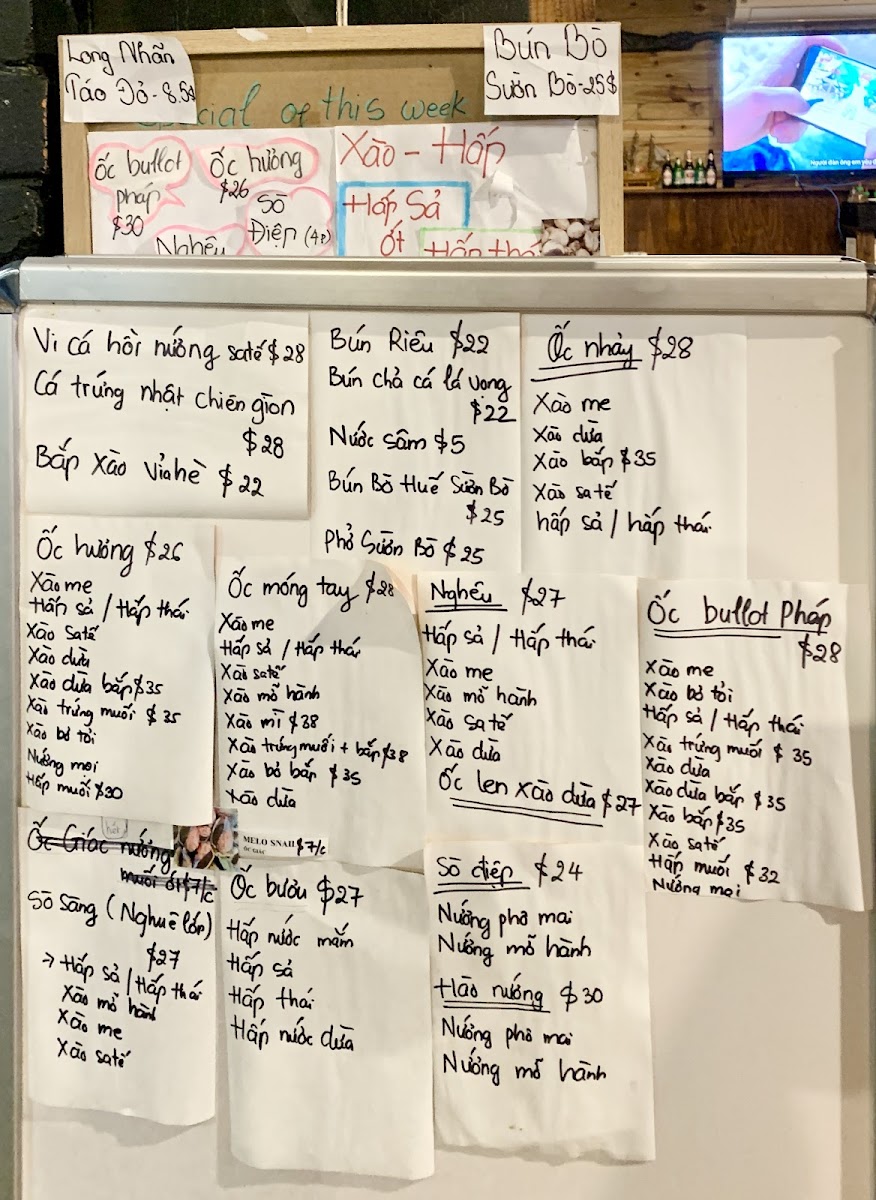 Long Nhãn
Táo Đỏ - 8.5$
Bún Bò
Sườn Bò - 25$
Special of this week
ốc bullot
pháp
$30
ốc hương
$26
Sò
Điệp (4p)
Nghêu
Xào - Hấp
Hấp Sả
ớt
Hấp thái
Vi cá hồi nướng satế $28
Cá trứng nhật chiên giòn
$28
Bắp xào vỉa hè $22
Bún Riêu $22
Bún chả cá lá vọng
$22
Nước sâm $5
Bún Bò Huế Sườn Bò
$25
Phở Sườn Bò $25
Ốc nhảy $28
Xào me
Xào dừa
Xào bắp $35
Xào satế
hấp sả / hấp thái
Ốc hương $26
Xào me
Hấp sả / Hấp thái
Xào satế
Xào dừa
Xào dừa bắp $35
Xào trứng muối $35
Xào bơ tỏi
Nướng mọi
Hấp muối $30
Ốc móng tay $28
Xào me
Hấp sả / Hấp thái
Xào satế
Xào mỡ hành
Xào mì $38
Xào trứng muối + bắp $38
Xào bơ bắp $35
Xào dừa
Nghêu $27
Hấp sả / Hấp thái
Xào me
Xào mỡ hành
Xào satế
Xào dừa
Ốc len xào dừa $27
Ốc bullot Pháp
$28
Xào me
Xào bơ tỏi
Hấp sả / Hấp thái
Xào trứng muối $35
Xào dừa
Xào dừa bắp $35
Xào bắp $35
Xào satế
Hấp muối $32
Nướng mọi
Ốc Giác nướng
muối ớt $7/c
MELO SNAIL $7/c
ỐC GIÁC
Sò Sàng (Nghuê lớn)
$27
→ Hấp sả / Hấp thái
Xào mỡ hành
Xào me
Xào satế
Ốc bươu $27
Hấp nước mắm
Hấp sả
Hấp thái
Hấp nước dừa
Sò điệp $24
Nướng phô mai
Nướng mỡ hành
Hào nướng $30
Nướng phô mai
Nướng mỡ hành